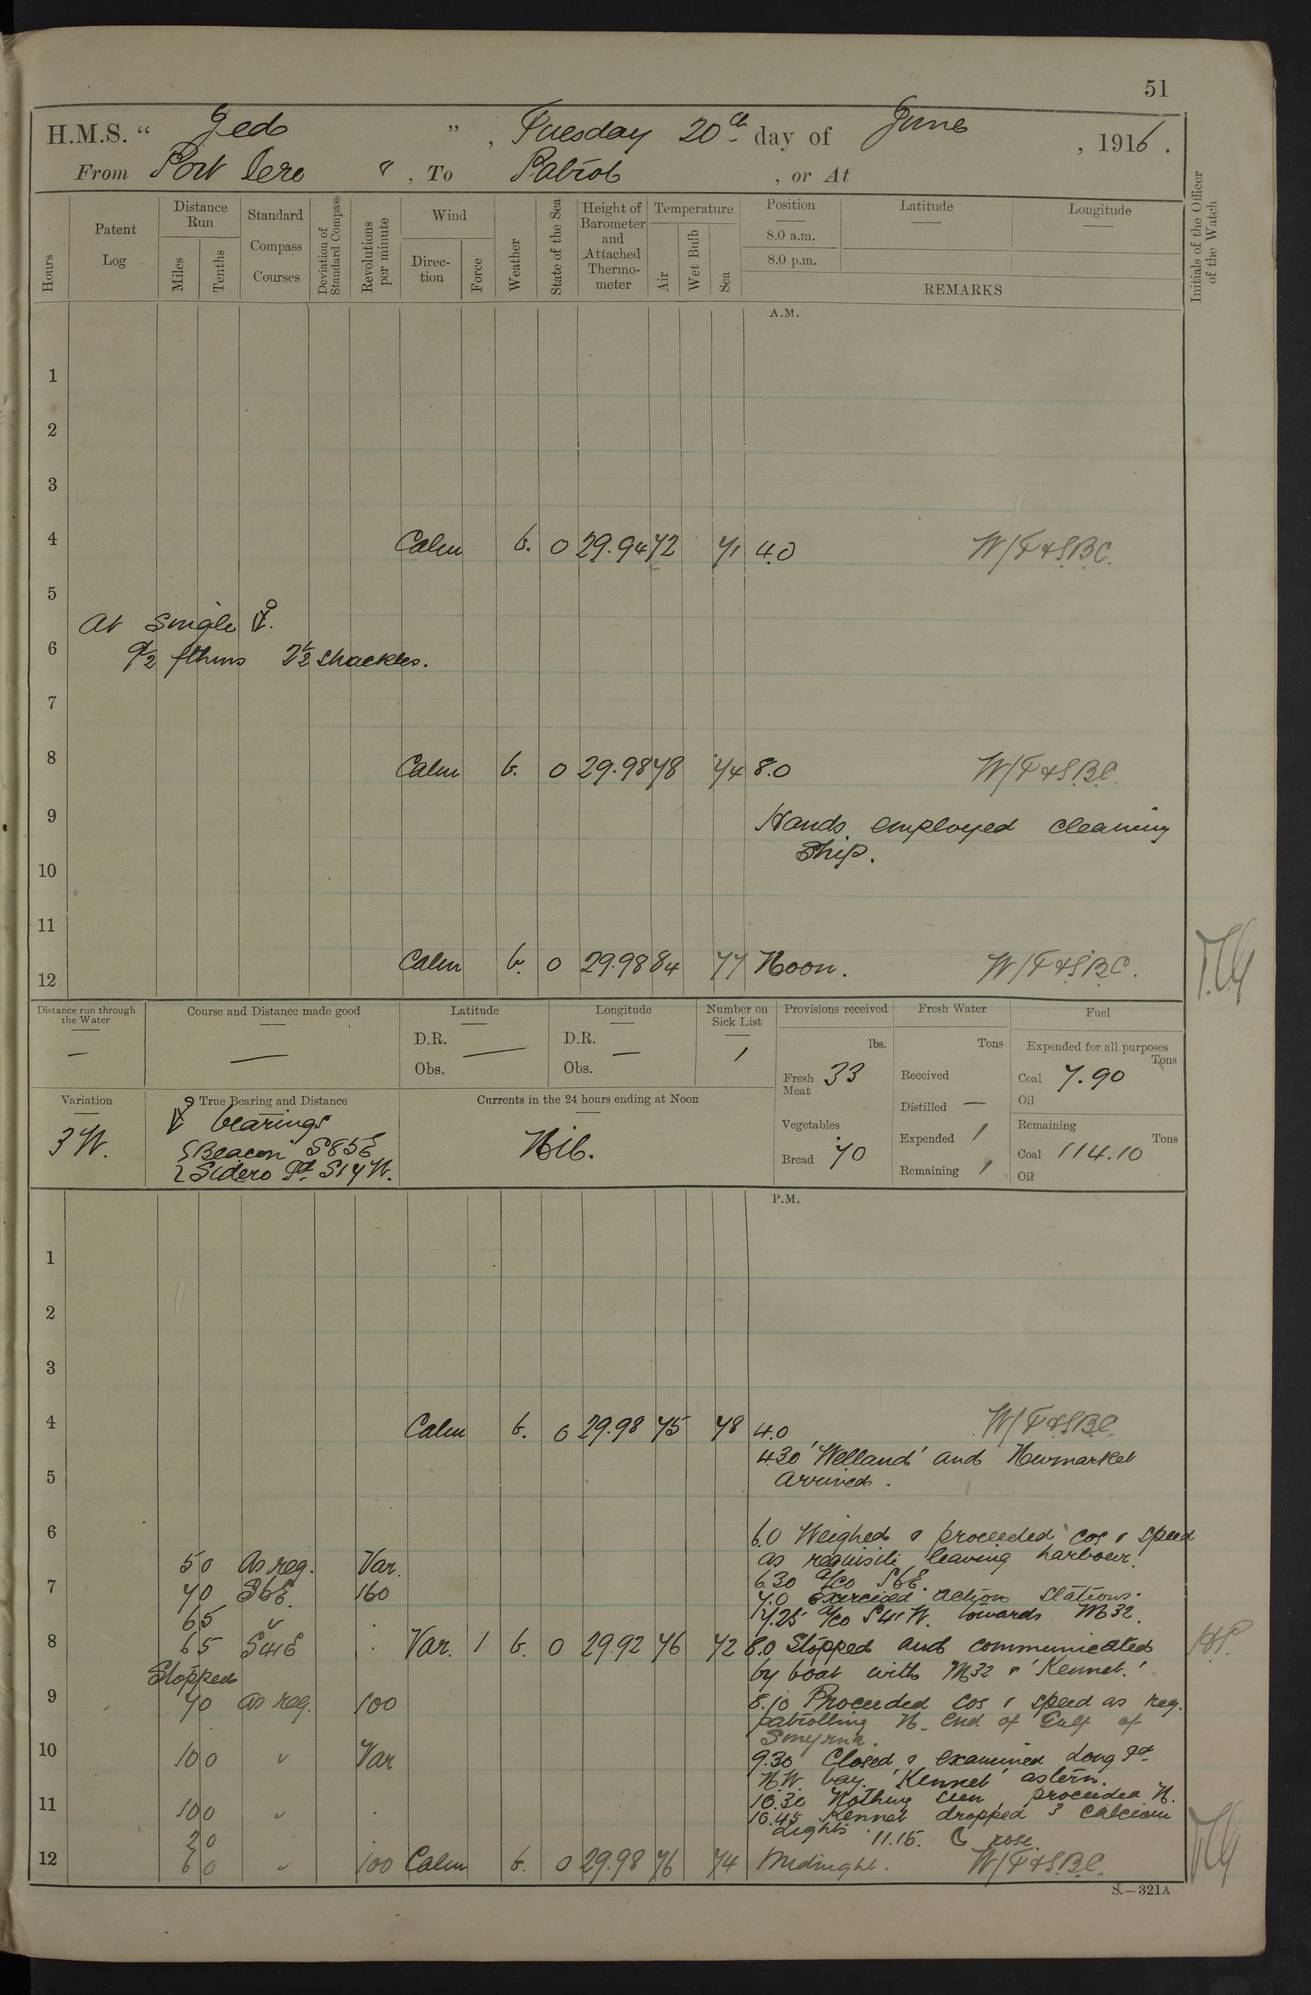 51
H.M.S. “ Jed ” , Tuesday 20th day of June , 1916 .
From Port Iero “ , To Patrol , or At
Hours
Patent Log
Distance Run
Miles
Tenths
Standard Compass Courses
Deviation of Standard Compass
Revolutions per minute
Wind
Direction
Force
Weather
State of the Sea
Height of Barometer and Attached Thermometer
Temperature
Air
Wet Bulb
Sea
Position
8.0 a.m.
8.0 p.m.
Latitude
Longitude
REMARKS
Initials of the Officer of the Watch
A.M.
1
2
3
4 Calm b. 0 29.94 72 71 4.0 W/T & S.B.C.
5
At single ⚓.
6
9½ fthms 2½ shackles.
7
8 Calm b. 0 29.98 78 74 8.0 W/T & S.B.C.
9 Hands employed cleaning
ship.
10
11
12 Calm b. 0 29.98 84 77 Noon. W/T & S.B.C.
Distance run through the Water —
Course and Distance made good —
Latitude
D.R. —
Obs.
Longitude
D.R. —
Obs.
Number on Sick List 1
Provisions received
lbs.
Fresh Meat 33
Vegetables
Bread 70
Fresh Water
Tons
Received
Distilled —
Expended 1
Remaining 1
Fuel
Expended for all purposes
Tons
Coal 7.90
Oil
Remaining
Tons
Coal 114.10
Oil
Variation
3 W.
True Bearing and Distance
⚓ bearings
{Beacon S85E
{Sidero Pt. S14W.
Currents in the 24 hours ending at Noon
Nil.
P.M.
1
2
3
4 Calm b. 0 29.98 75 78 4.0 W/T & S.B.C.
4.30 'Welland' and Newmarket
arrived.
5
6 6.0 Weighed & proceeded cos & speed
5 0 As req. Var. as requisite leaving harbour.
6.30 a/co SbE.
7 7 0 SbE. 160 7.0 Exercised action stations.
6 5 " 7.25 a/co S41W. towards M32.
8 6 5 S41E Var. 1 b. 0 29.92 76 72 8.0 Stopped and communicated
Stopped by boat with M32 & 'Kennet.'
9 7 0 as req. 100 8.10 Proceeded cos & speed as req.
patrolling N. end of Gulf of
Smyrna.
10 10 0 " Var 9.30 Closed & examined Long Pt.
N.W. bay. 'Kennet' astern.
11 10 0 " 10.30 Nothing seen, proceeded N.
10.45 Kennet dropped 3 calcium
2 0 lights 11.15. ☾ rose.
12 6 0 " 100 Calm b. 0 29.98 76 74 Midnight. W/T & S.B.C.
S.—321A